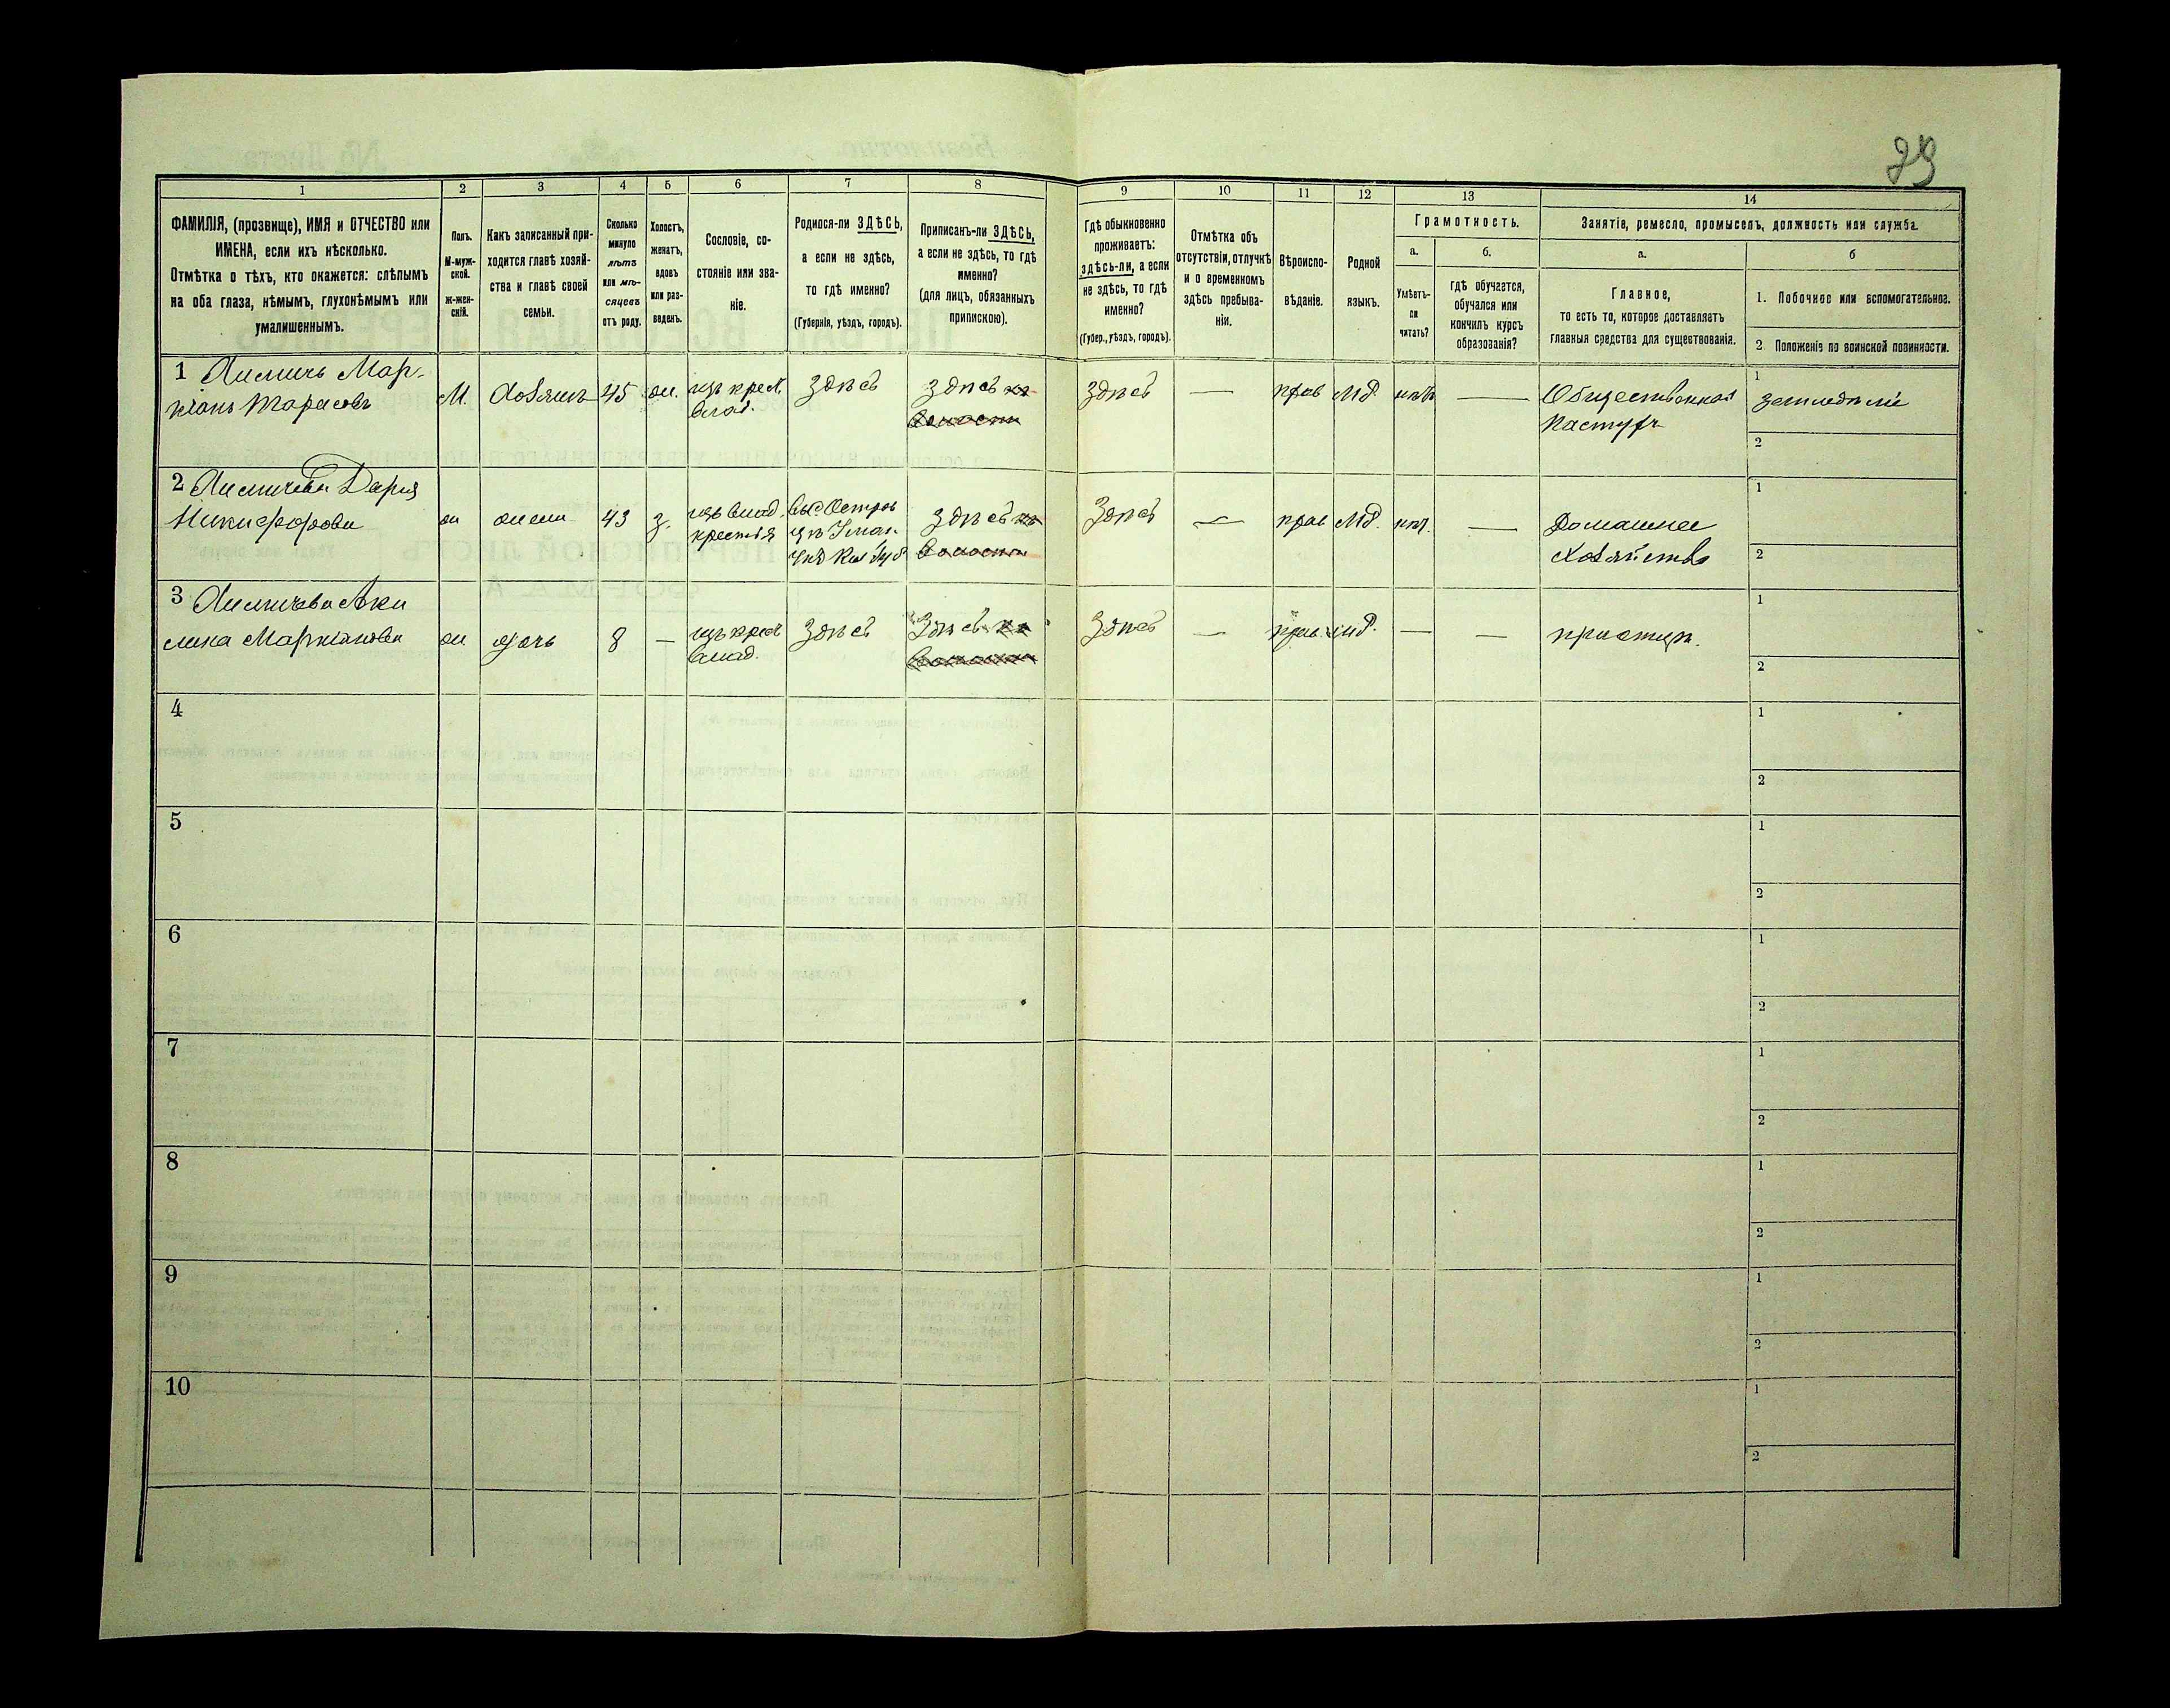 29
1 2 3 4 5 6 7 8 9 10 11 12 13 14
ФАМИЛІЯ, (прозвище), ИМЯ и ОТЧЕСТВО или
ИМЕНА, если ихъ нѣсколько.
Отмѣтка о тѣхъ, кто окажется: слѣпымъ
на оба глаза, нѣмымъ, глухонѣмымъ или
умалишеннымъ.
Полъ.
М-муж-
ской.
Ж-жен-
скій.
Какъ записанный при-
ходится главѣ хозяй-
ства и главѣ своей
семьи.
Сколько
минуло
лѣтъ
или мѣ-
сяцевъ
отъ роду.
Холостъ,
женатъ,
вдовъ
или раз-
веденъ.
Сословіе, со-
стояніе или зва-
ніе.
Родился-ли ЗДѢСЬ,
а если не здѣсь,
то гдѣ именно?
(Губернія, уѣздъ, городъ).
Приписанъ-ли ЗДѢСЬ,
а если не здѣсь, то гдѣ
именно?
(для лицъ, обязанныхъ
припискою).
Гдѣ обыкновенно
проживаетъ:
здѣсь-ли, а если
не здѣсь, то гдѣ
именно?
(Губер., уѣздъ, городъ).
Отмѣтка объ
отсутствіи, отлучкѣ
и о временномъ
здѣсь пребыва-
ніи.
Вѣроиспо-
вѣданіе.
Родной
языкъ.
Грамотность.
а.
Умѣетъ-
ли
читать?
б.
гдѣ обучается,
обучался или
кончилъ курсъ
образованія?
Занятіе, ремесло, промыселъ, должность или служба.
а.
Главное,
то есть то, которое доставляетъ
главныя средства для существованія.
б
1. Побочное или вспомогательное.
2 Положеніе по воинской повинности.
1 Мар-
кіанъ Тарасовъ
М. хозяинъ 45 ж. изъ крест.
влад.
здѣсь
здѣсь
волости
здѣсь — прав Мр. нѣтъ —
Общественный
пастухъ
1 земледѣліе
2
2 Дарія
Никифорова
ж жена 43 з. изъ влад.
крестья
здѣсь
волости
здѣсь — прав Мр. нѣт. —
Домашнее
хозяйство
1
2
3 Аки
лина Маркіанова
ж дочь 8 — изъ крест
влад.
здѣсь
здѣсь
волости
здѣсь — прав. мр. — —
при отцѣ.
1
2
4 1
2
5 1
2
6 1
2
7 1
2
8 1
2
9 1
2
10 1
2